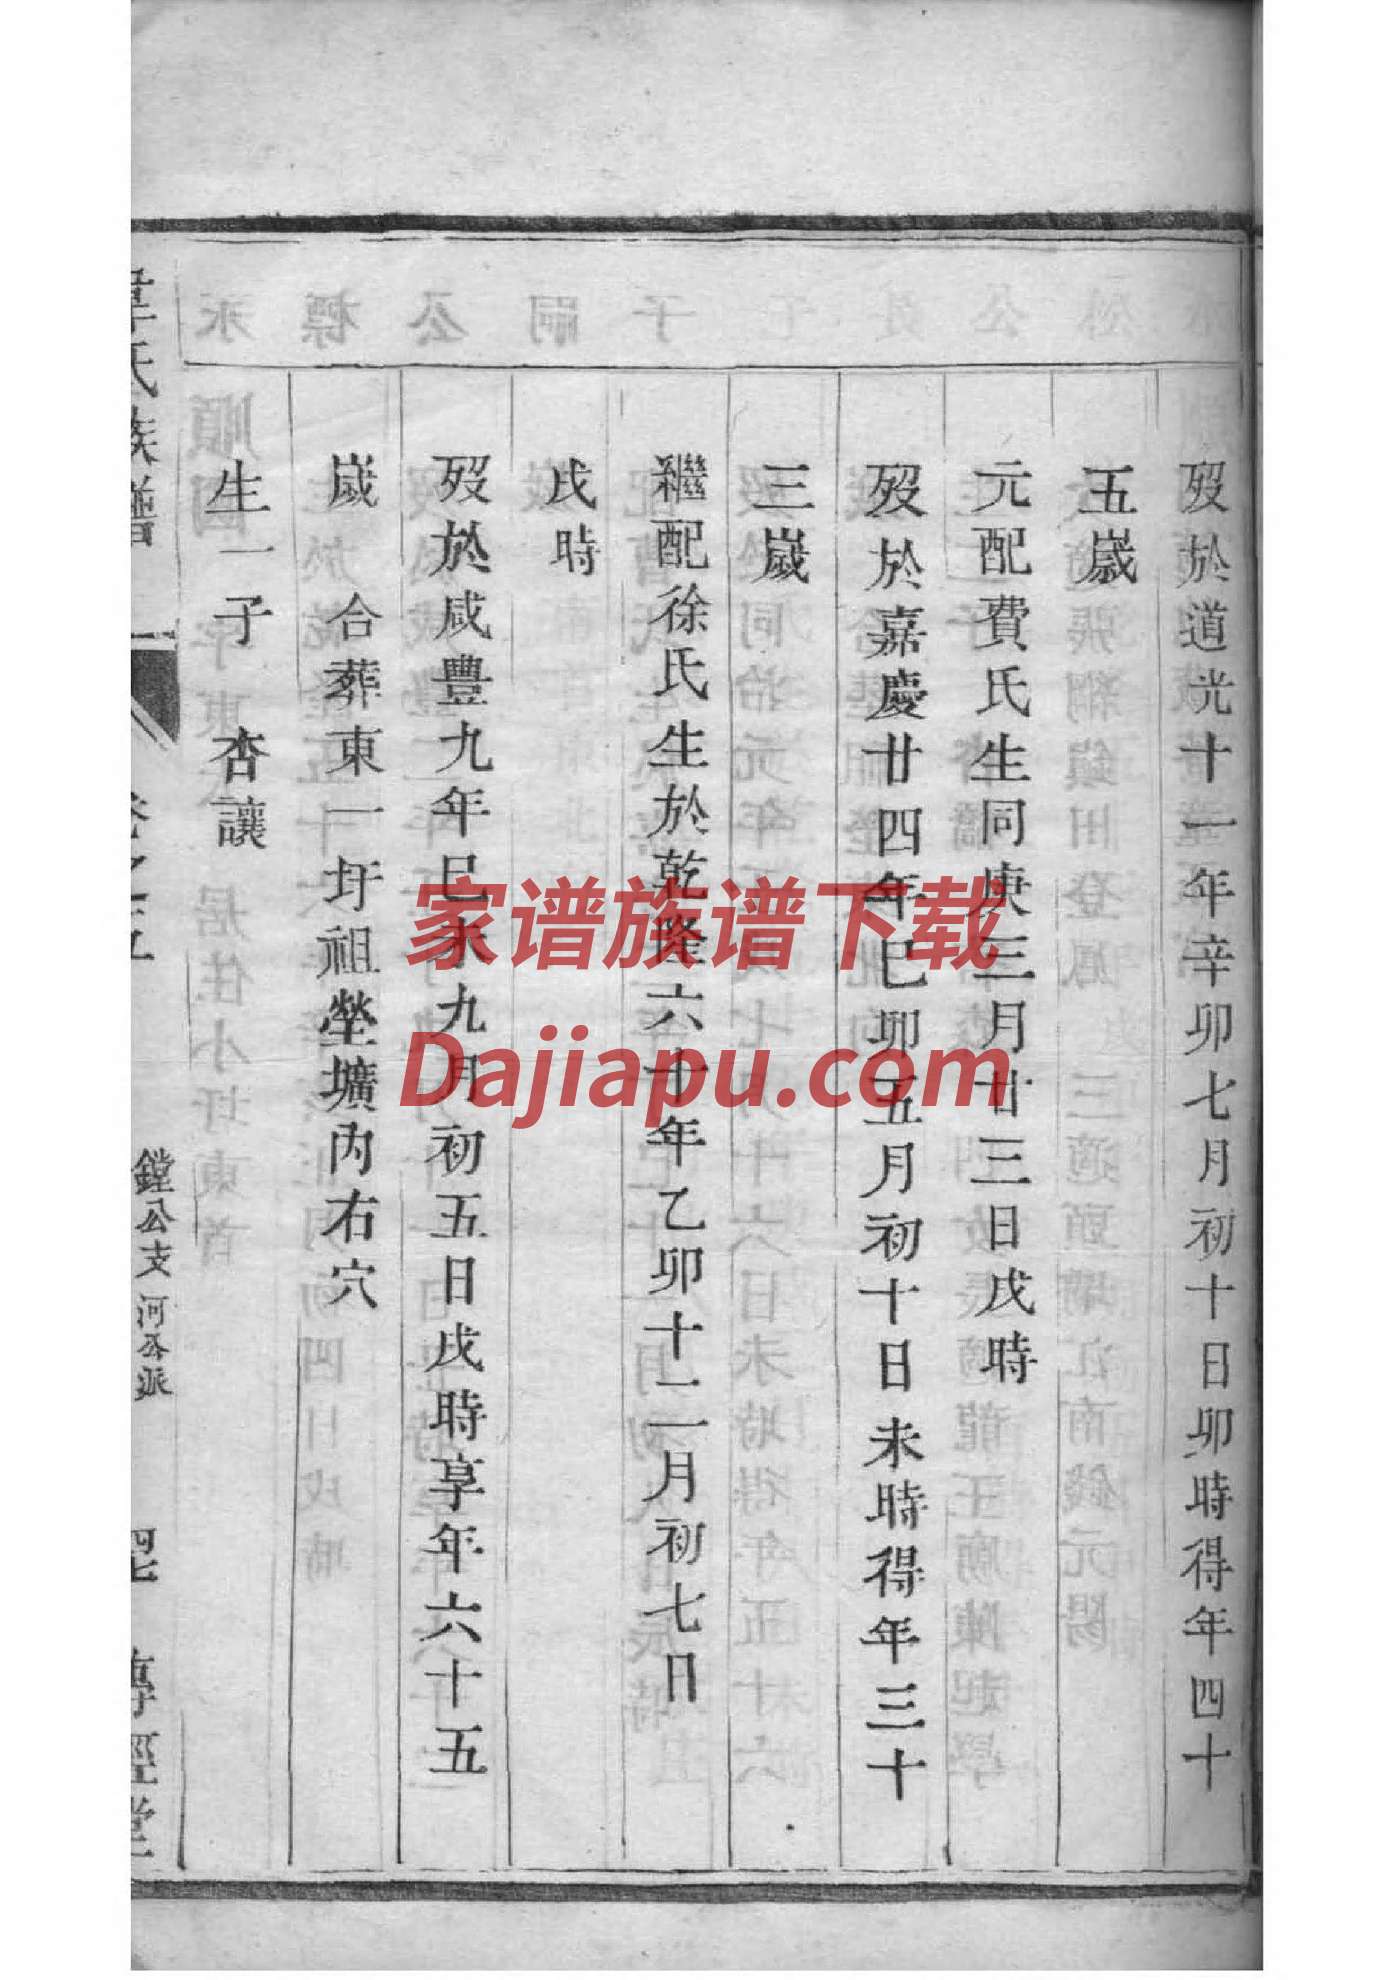 歿於道光十一年辛卯七月初十日卯時得年四十
五歲
元配費氏生同庚三月廿三日戌時
歿於嘉慶廿四年巳卯五月初十日未時得年三十
三歲
繼配徐氏生於乾隆六十年乙卯十二月初七日
戌時
歿於咸豐九年巳未九月初五日戌時享年六十五
歲 合葬東一圩祖塋壙內右穴
生一子 杏讓
氏族譜 卷之五 鏜公支河公派 四七 傳經堂
家谱族谱下载
Dajiapu.com